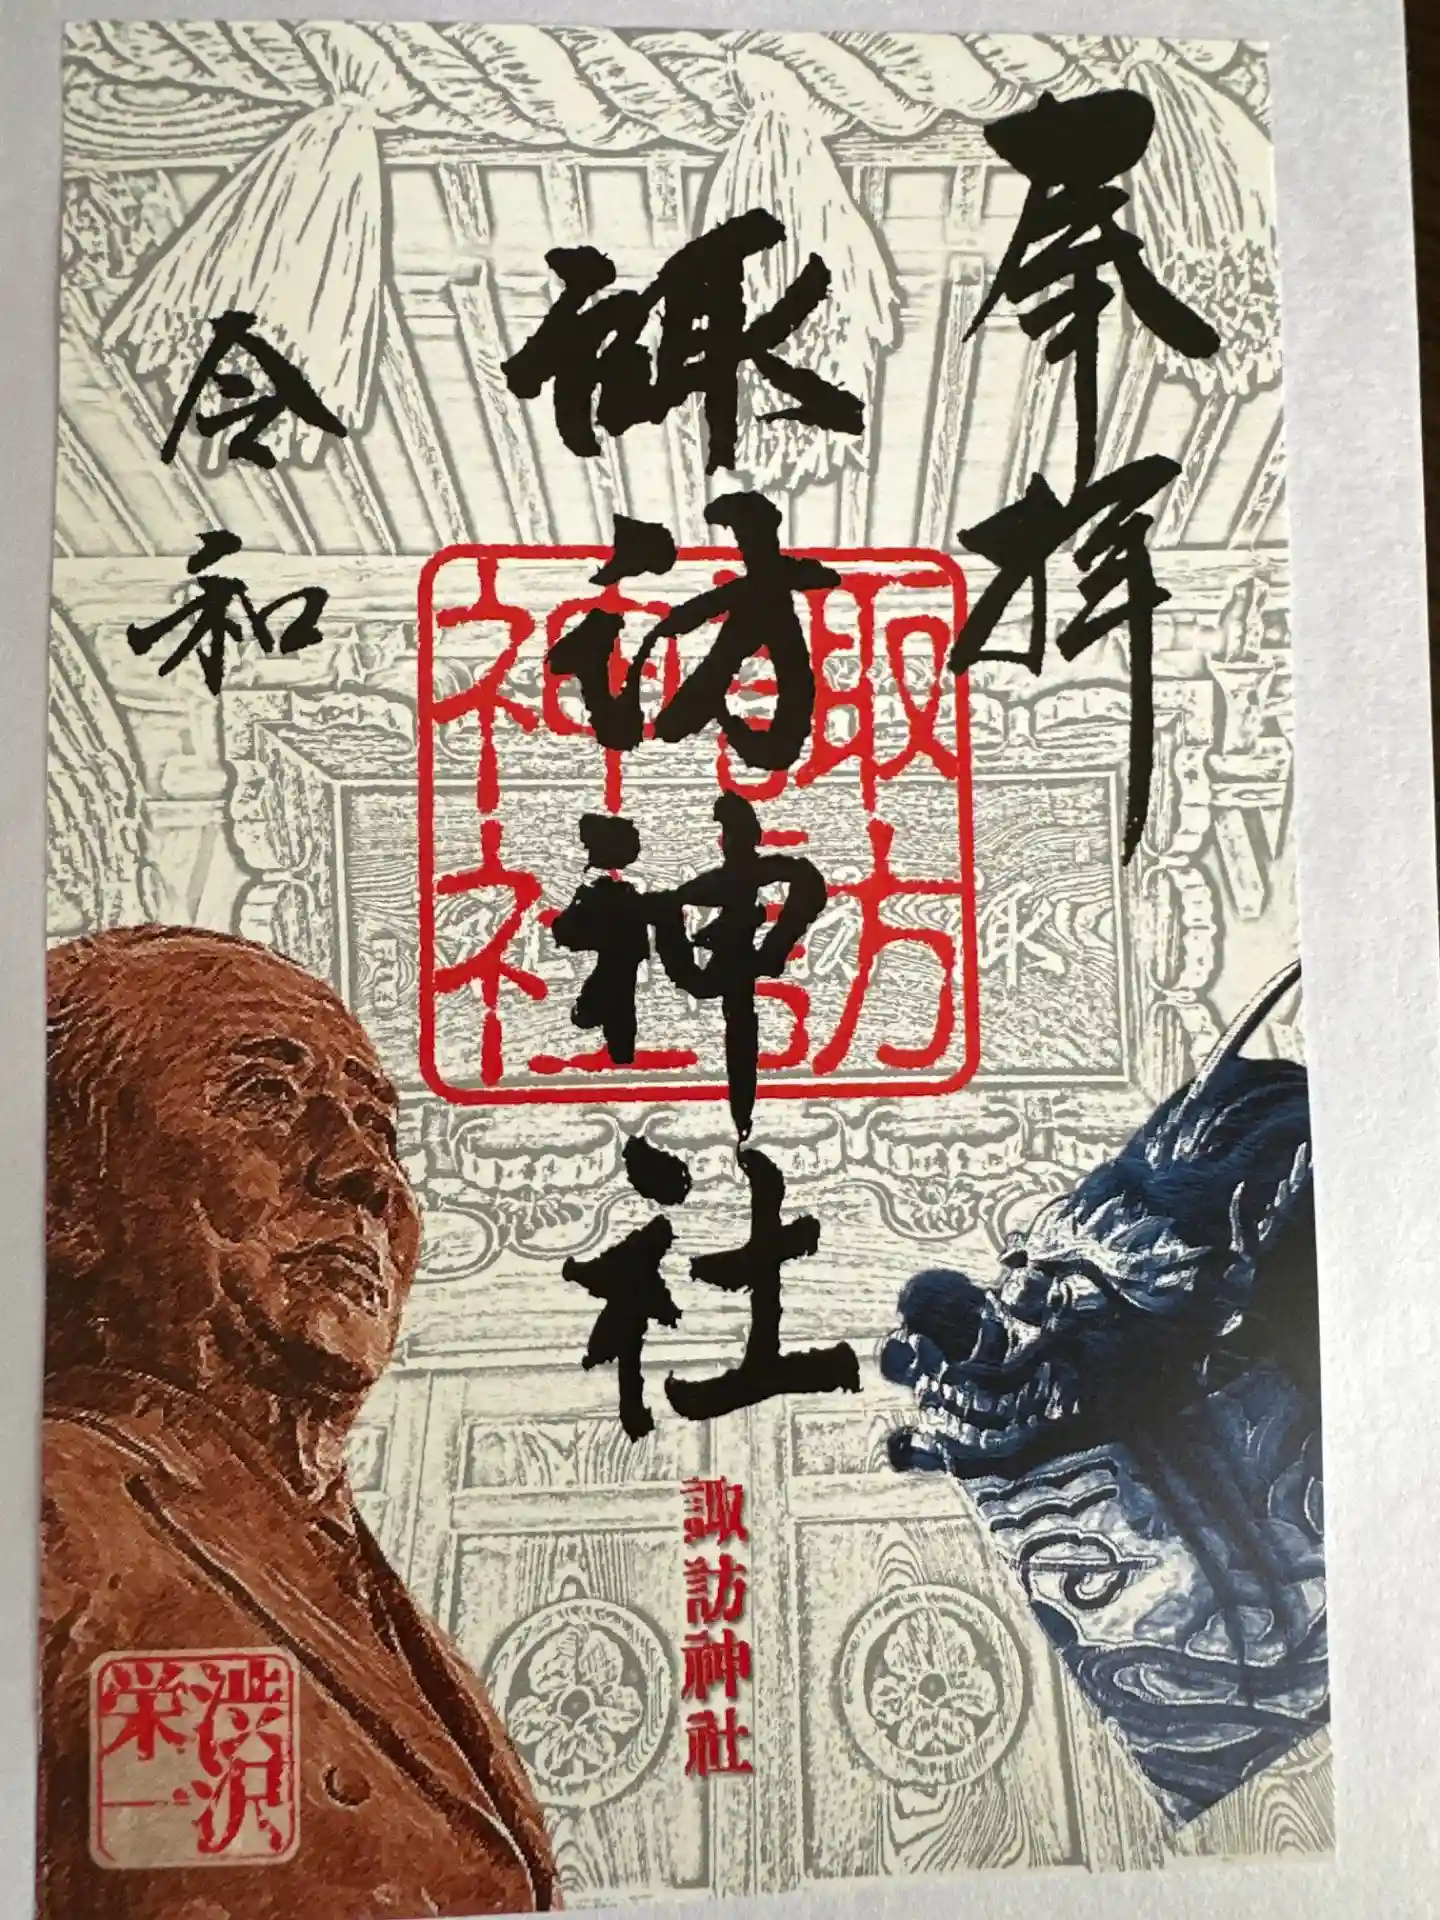 奉拝
諏訪神社
令和
諏訪
神社
諏訪神社
渋沢
栄一